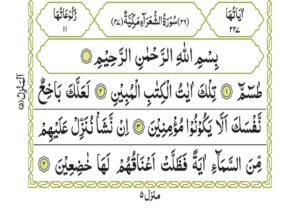 اٰيَاتُهَا ٢٢٧
(٢٦) سُوْرَةُ الشُّعَرَآءِ مَكِّيَّةٌ (٤٧)
رُكُوْعَاتُهَا ١١
بِسْمِ اللّٰهِ الرَّحْمٰنِ الرَّحِيْمِ
طٰسٓمّٓ ۝١ تِلْكَ اٰيٰتُ الْكِتٰبِ الْمُبِيْنِ ۝٢ لَعَلَّكَ بَاخِعٌ
نَّفْسَكَ اَلَّا يَكُوْنُوْا مُؤْمِنِيْنَ ۝٣ اِنْ نَّشَاْ نُنَزِّلْ عَلَيْهِمْ
مِّنَ السَّمَآءِ اٰيَةً فَظَلَّتْ اَعْنَاقُهُمْ لَهَا خٰضِعِيْنَ ۝٤
منزل ٥